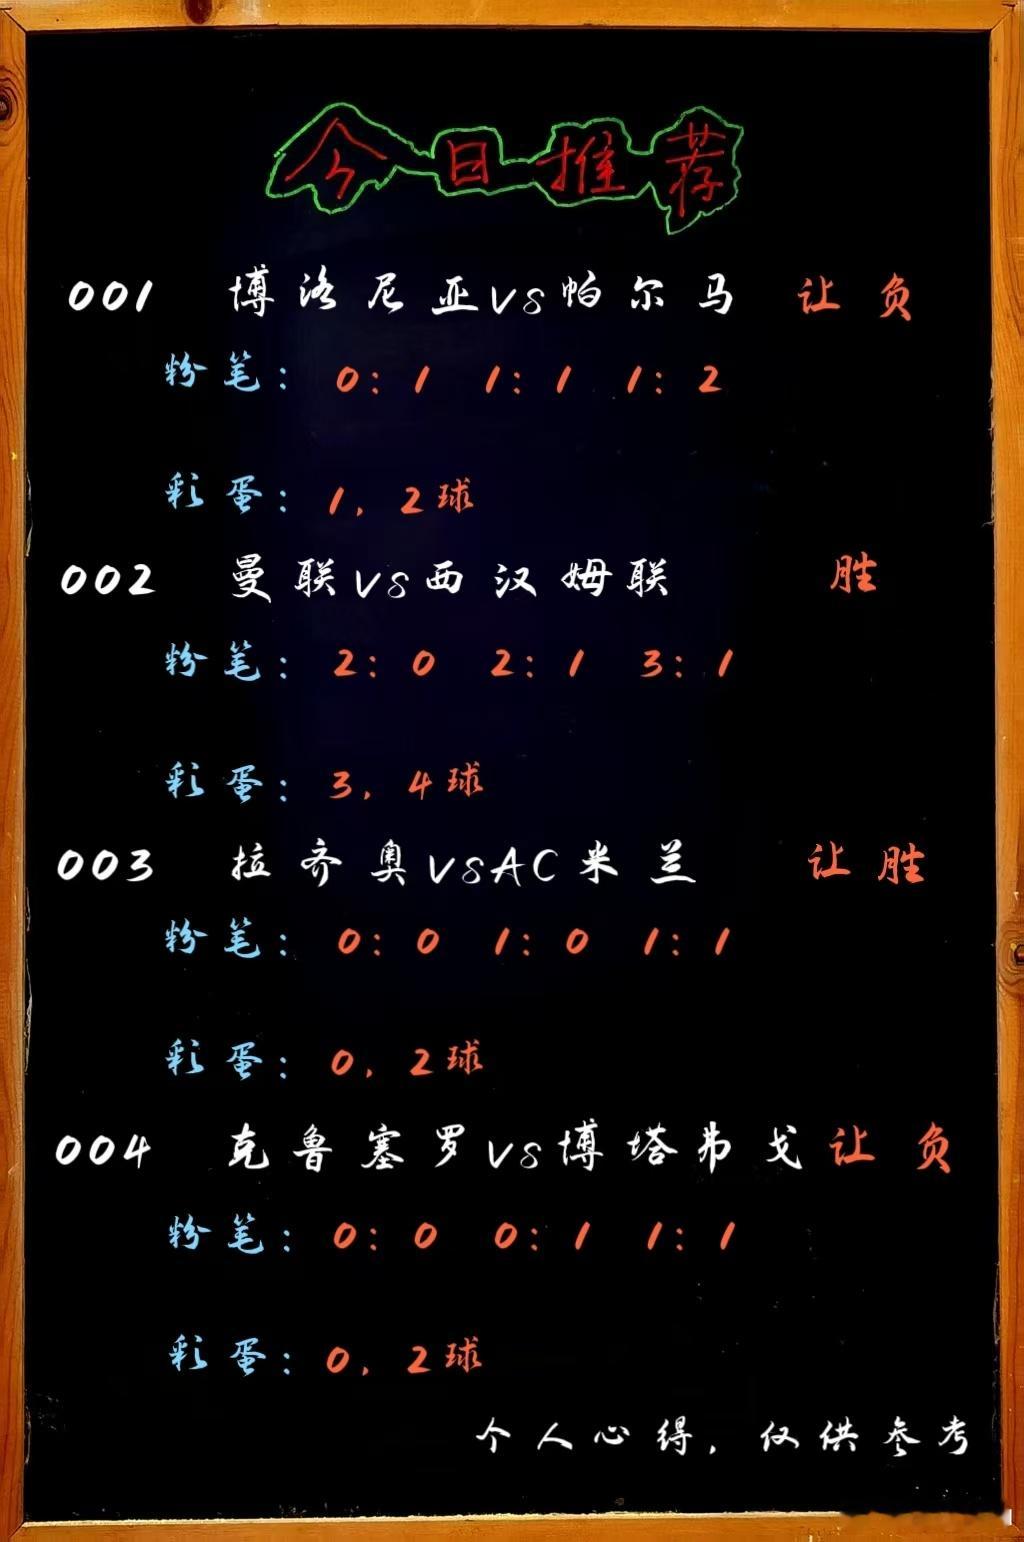 今日推荐
001 博洛尼亚VS帕尔马 让负
粉笔：0：1 1：1 1：2
彩蛋：1，2球
002 曼联VS西汉姆联 胜
粉笔：2：0 2：1 3：1
彩蛋：3，4球
003 拉齐奥VSAC米兰 让胜
粉笔：0：0 1：0 1：1
彩蛋：0，2球
004 克鲁塞罗VS博塔弗戈让负
粉笔：0：0 0：1 1：1
彩蛋：0，2球
个人心得，仅供参考